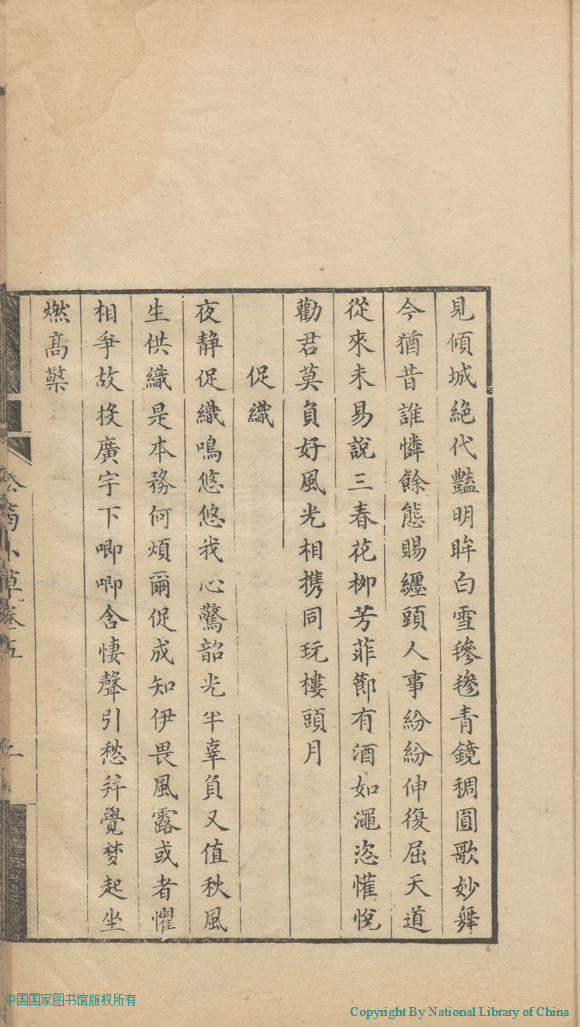 見傾城絶代豔明眸白雪青鏡稠圓歌妙舞
今猶昔誰憐餘態賜纏頭人事紛紛伸復屈天道
從來未易說三春花柳芳菲節有酒如澠恣懽悅
勸君莫負好風光相携同玩樓頭月
促織
夜静促織鳴悠悠我心驚韶光半辜負又值秋風
生供織是本務何煩爾促成知伊畏風露或者懼
相爭故投廣宇下唧唧含悽聲引愁并覺梦起坐
燃高檠
小草卷五
中国国家图书馆版权所有
Copyright By National Library of China